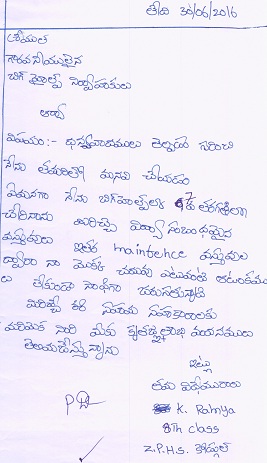 తేది 30/06/2016
శ్రీయుత
గౌరవనీయులైన
బిగ్ హెల్ప్ నిర్వాహకులు
ఆర్యా
విషయం:- ధన్యవాదములు తెల్పుట గురించి
నేను తమరితో మనవి చేయడం
ఏమనగా నేను బిగ్ హెల్ప్ లో 7వ తరగతిలో
చేరినాను మీరిచ్చే విద్యా సంబంధమైన
వస్తువులు ఇతర maintence వస్తువుల
ద్వారా నా యొక్క చదువు ఎటువంటి ఆటంకము
లేకుండా సాఫీగా
మీరిచ్చే ఈ సహాయ సహకారాలకు
మరియొక సారి మీకు కృతజ్ఞతాభి వందనములు
తెలియజేస్తున్నాను
ఇట్లు
తమ విధేయురాలు
K. Ramya
8th class
Z.P.H.S.